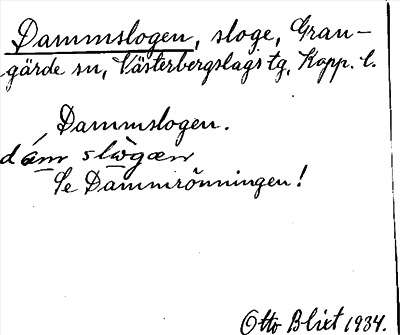 Dammslogen, sloge, Gran-
gärde sn, Västerbergslags tg, Kopp. l.
Dammslogen.
dám slògæn
Se Dammrönningen!
Otto Blixt 1934.